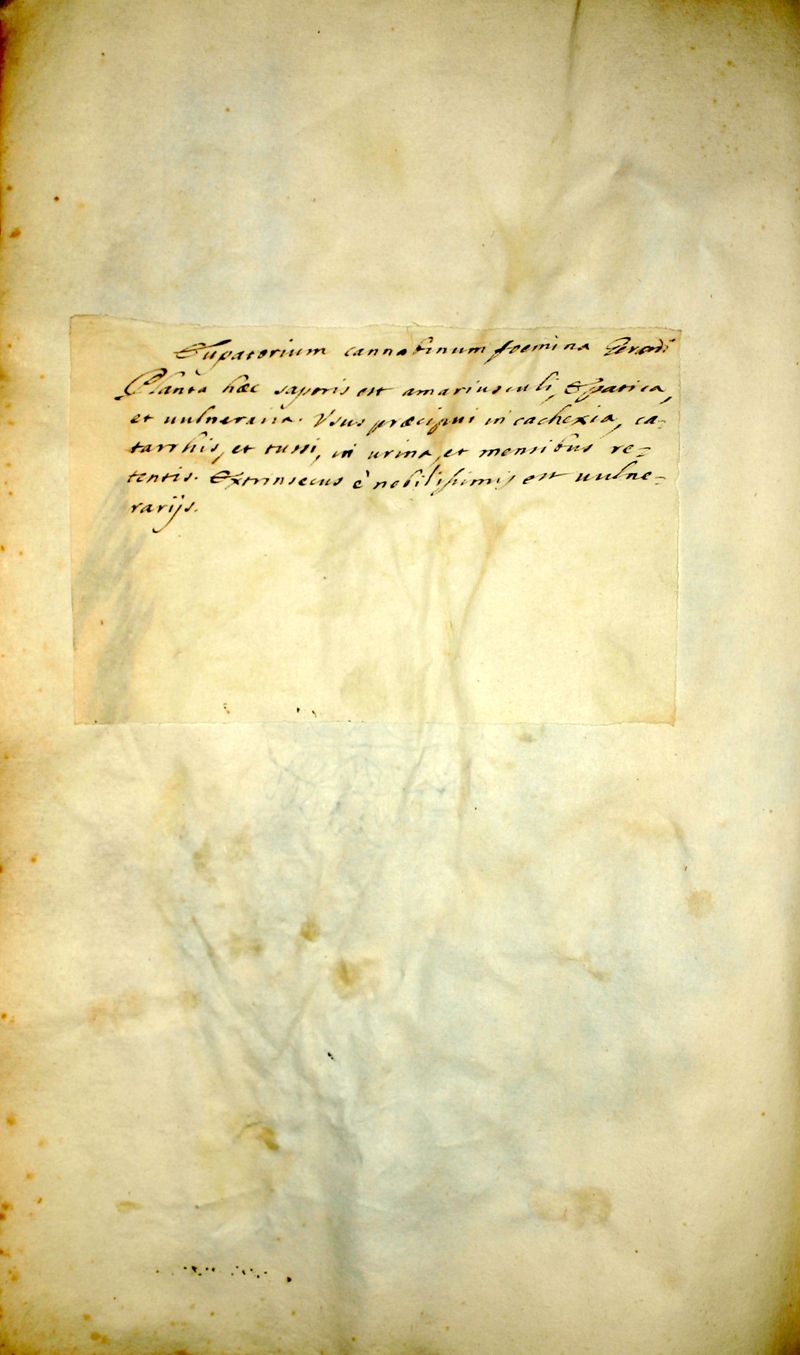 Eupatorium cannabinum foemina
Planta hæc saporis est amariusculi, Epatica,
et uulneraria. Vsus præcipui in cachexia, ca-
tarrhis, et tussi, in urina, et mensibus re-
tentis. Extrinsecus è nobilissimis est uulne-
rarijs.